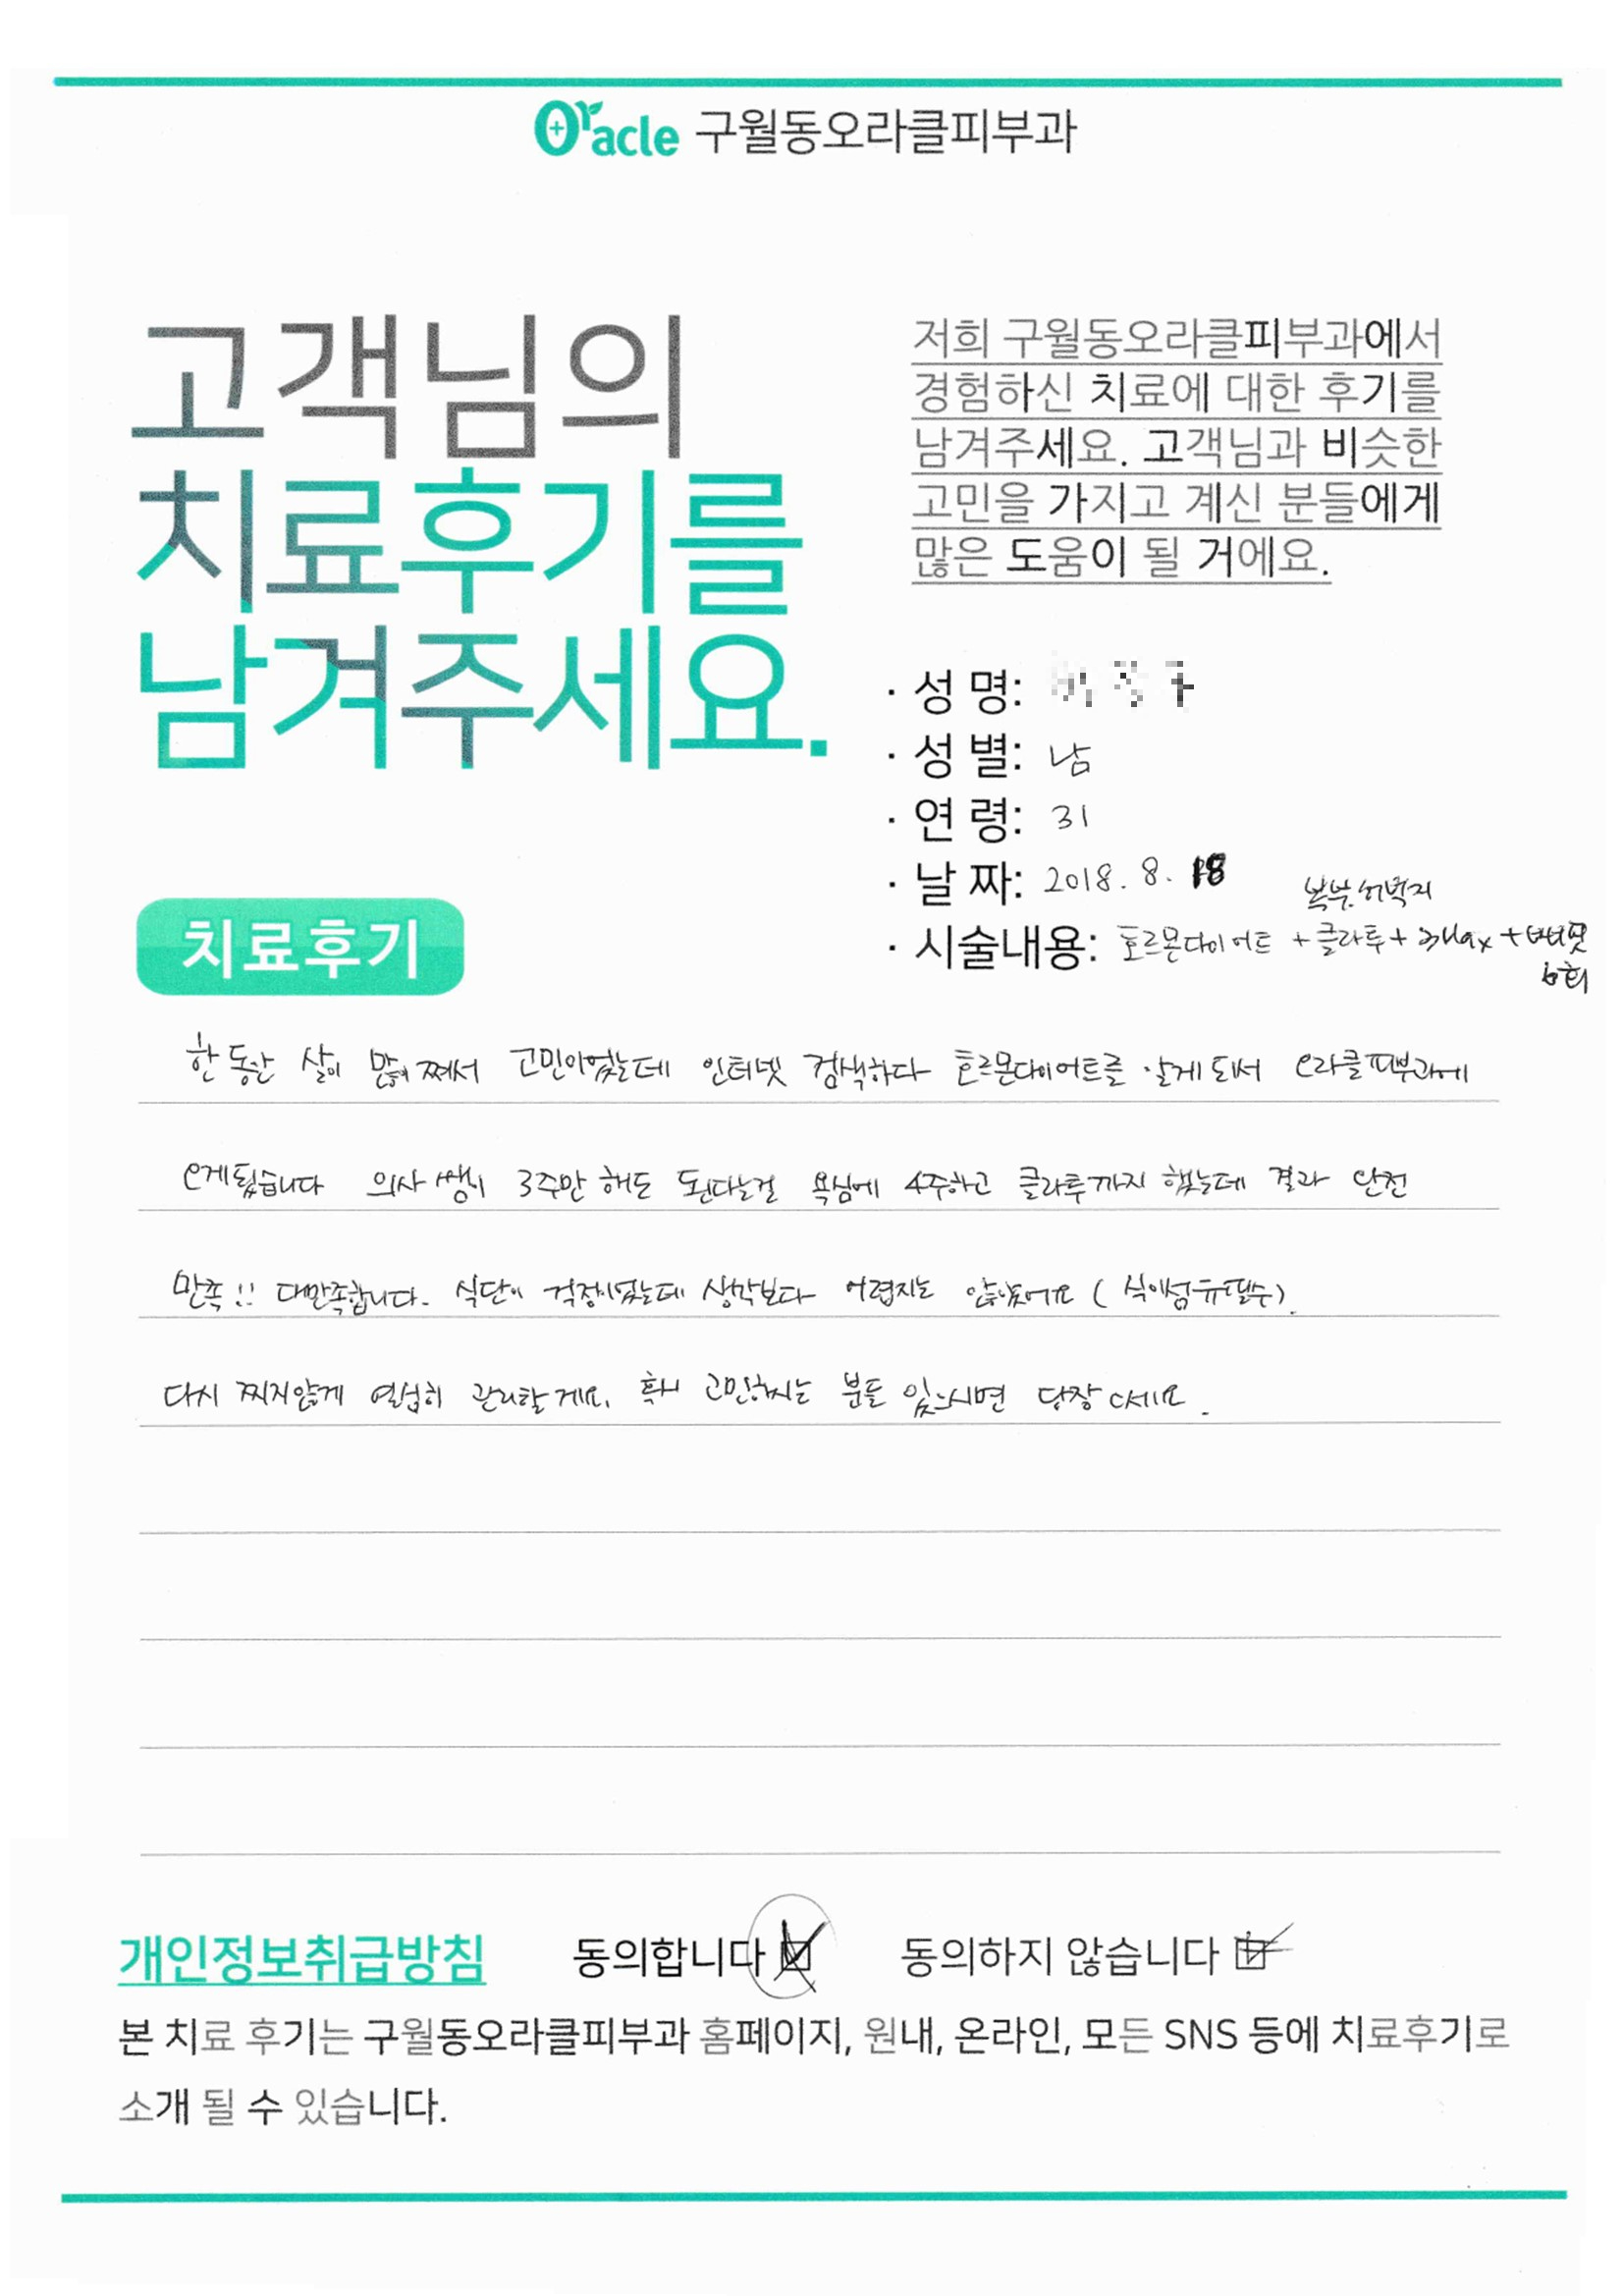 Oracle 구월동오라클피부과
고객님의
치료후기를
남겨주세요.
저희 구월동오라클피부과에서
경험하신 치료에 대한 후기를
남겨주세요. 고객님과 비슷한
고민을 가지고 계신 분들에게
많은 도움이 될 거에요.
· 성 명:
· 성 별: 남
· 연 령: 31
· 날 짜: 2018. 8. 18
복부.허벅지
· 시술내용: 호르몬다이어트 + 클라투 +
6회
치료후기
한동안 살이 많이 쪄서 고민이었는데 인터넷 검색하다 호르몬다이어트를 알게 되서 오라클피부과에
오게됬습니다 의사쌤이 3주만 해도 된다는걸 욕심에 4주하고 클라투까지 했는데 결과 완전
만족!! 대만족합니다. 식단이 걱정이었는데 생각보다 어렵지는 않았어요 (식이섬유필수).
다시 찌지않게 열심히 관리할게요. 혹시 고민하시는 분들 있으시면 당장 오세요.
개인정보취급방침 동의합니다 동의하지 않습니다
본 치료 후기는 구월동오라클피부과 홈페이지, 원내, 온라인, 모든 SNS 등에 치료후기로
소개 될 수 있습니다.